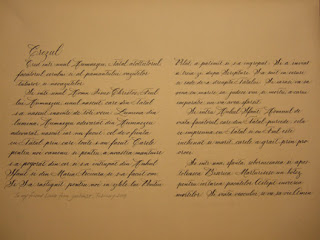 Crezul
Cred într-unul Dumnezeu Tatăl atotţiitorul,
făcătorul cerului şi al pământului, văzutelor
tuturor şi nevăzutelor.
Şi întru unul Domn Iisus Christos, Fiul
lui Dumnezeu, unul născut, care din Tatăl
s-a născut înainte de toţi vecii. Lumină din
lumină, Dumnezeu adevărat din Dumnezeu
adevărat, născut nu făcut, cel de o fiinţă
cu Tatăl prin care toate s-au făcut. Carele
pentru noi oamenii şi pentru a noastră mântuire
s-a pogorât din cer şi s-a întrupat din Duhul
Sfânt şi din Maria Fecioara şi s-a făcut om.
Şi s-a răstignit pentru noi în zilele lui Pontiu
Pilat, a pătimit şi s-a îngropat. Şi a înviat
a treia zi după Scripturi. Şi s-a suit la ceruri
şi şade de-a dreapta Tatălui. Şi iarăşi va să
vină cu mărire, să judece viii şi morţii, a cărui
împărăţie nu va avea sfârşit.
Şi întru Duhul Sfânt, Domnul de
viaţă făcătorul, care din Tatăl purcede, cela
ce împreună cu Tatăl şi cu Fiul este
închinat şi mărit, carele a grăit prin pro-
oroci.
Şi întru una sfântă, sobornicească şi apo-
stolească Biserică. Mărturisesc un botez
pentru iertarea păcatelor. Aştept învierea
morţilor. Şi viaţa veacului ce va să vie. Amin